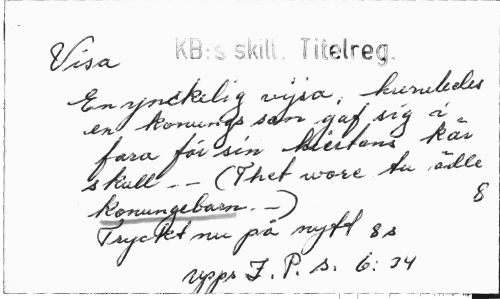 KB:s skill. Titelreg.
Visa
En ynckelig vijsa, huruledes
en konungs son gaf sig i
fara för sin hiertans kär
skull -- (Thet wore tu ädle
konungebarn. --)
Tryckt nu på nytt 8s 8
Upps J. P. s. 6: 34